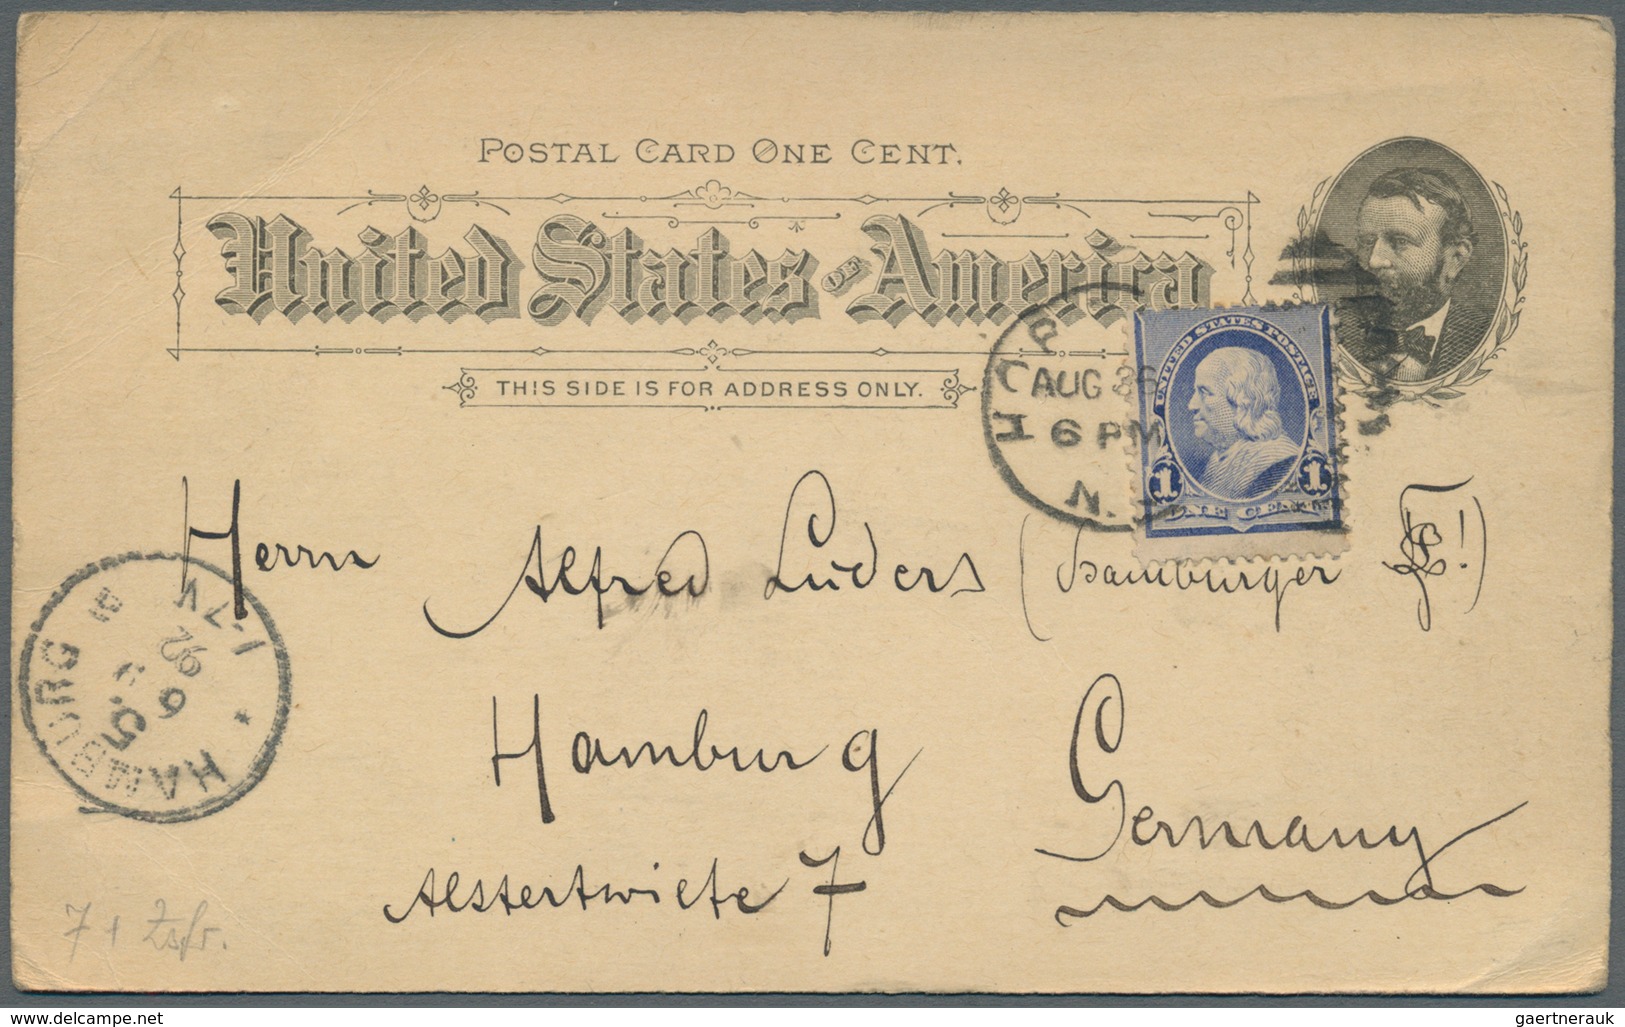 POSTAL CARD ONE CENT.
United States OF America
THIS SIDE IS FOR ADDRESS ONLY.
AUG 26
6 PM
N.J.
UNITED STATES POSTAGE
1 1
ONE CENT
Herrn Alfred Lüders (Hamburger !)
Hamburg
Germany
Alstertwiete 7
HAMBURG
1-2N
6 9
92
7 +
www.delcampe.net
gaertnerauk